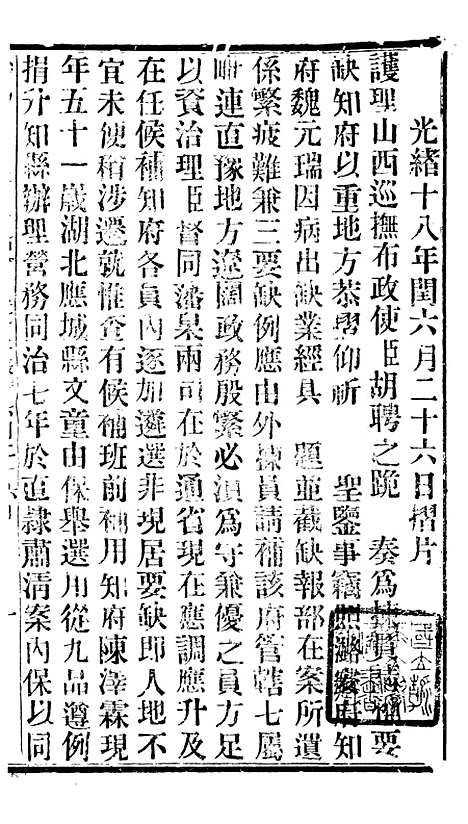 光緒十八年閏六月二十六日摺片
護理山西巡撫布政使臣胡聘之跪　奏爲揀員請補要
缺知府以重地方恭摺仰祈　聖鑒事竊照潞安府知
府魏元瑞因病出缺業經具　題並截缺報部在案所遺
係繁疲難兼三要缺例應由外揀員請補該府管轄七屬
毗連直豫地方遼闊政務殷繁必湏爲守兼優之員方足
以資治理臣督同藩臬兩司在於通省現在應調應升及
在任候補知府各員內逐加遴選非現居要缺卽人地不
宜未便稍涉遷就惟查有候補班前補用知府陳澤霖現
年五十一歲湖北應城縣文童由保舉選用從九品遵例
捐升知縣辦理營務同治七年於直隸肅淸案內保以同